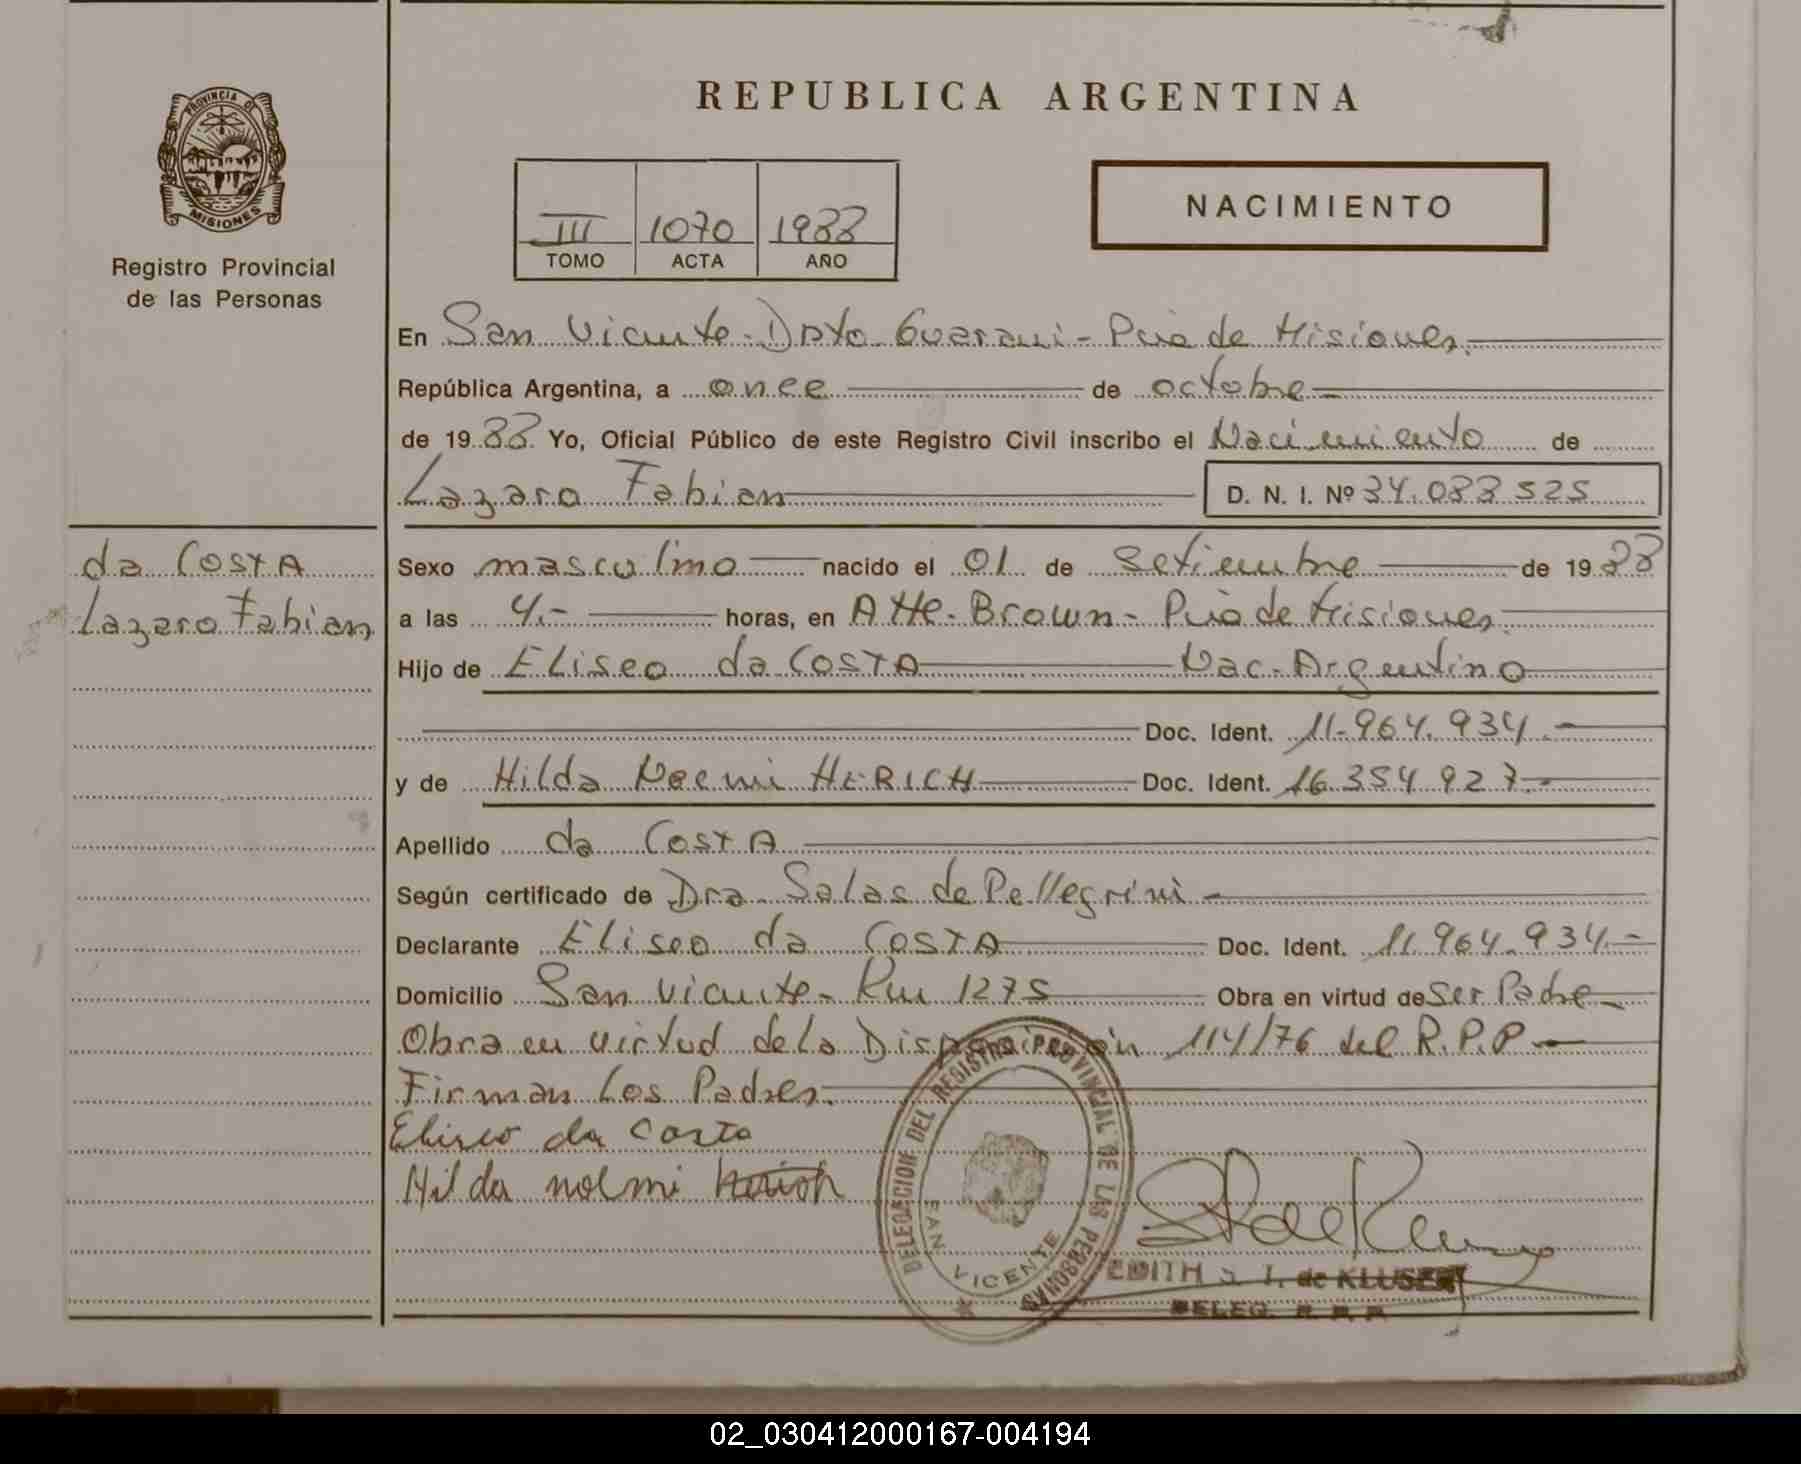 REPUBLICA ARGENTINA
PROVINCIA DE
MISIONES
Registro Provincial
de las Personas
III 1070 1988
TOMO ACTA AÑO
NACIMIENTO
En San Vicente - Dpto Guarani - Pcia de Misiones.
República Argentina, a once de octobre
de 1988 Yo, Oficial Público de este Registro Civil inscribo el Nacimiento de
Lazaro Fabian D. N. I. Nº 34.088 525
da COSTA
Lazaro Fabian
Sexo masculino nacido el 01 de Setiembre de 1988
a las 4.- horas, en Alte. Brown - Pcia de Misiones.
Hijo de Eliseo da COSTA Nac. Argentino
Doc. Ident. 11.964.934.-
y de Hilda Noemi HERICH Doc. Ident. 16.354 927.-
Apellido da COSTA
Según certificado de Dra. Salas de Pellegrini -
Declarante Eliseo da COSTA Doc. Ident. 11.964.934.-
Domicilio San Vicente - Km 1275 Obra en virtud de Ser Padre -
Obra en virtud de la Disposición 114/76 del R.P.P -
Firman los Padres.
Eliseo da Costa
Hilda noemi Herich
DELEGACION DEL REGISTRO PROVINCIAL DE LAS PERSONAS
SAN VICENTE
EDITH S. I. de KLUSENER
DELEG. R. P. P.
02_030412000167-004194